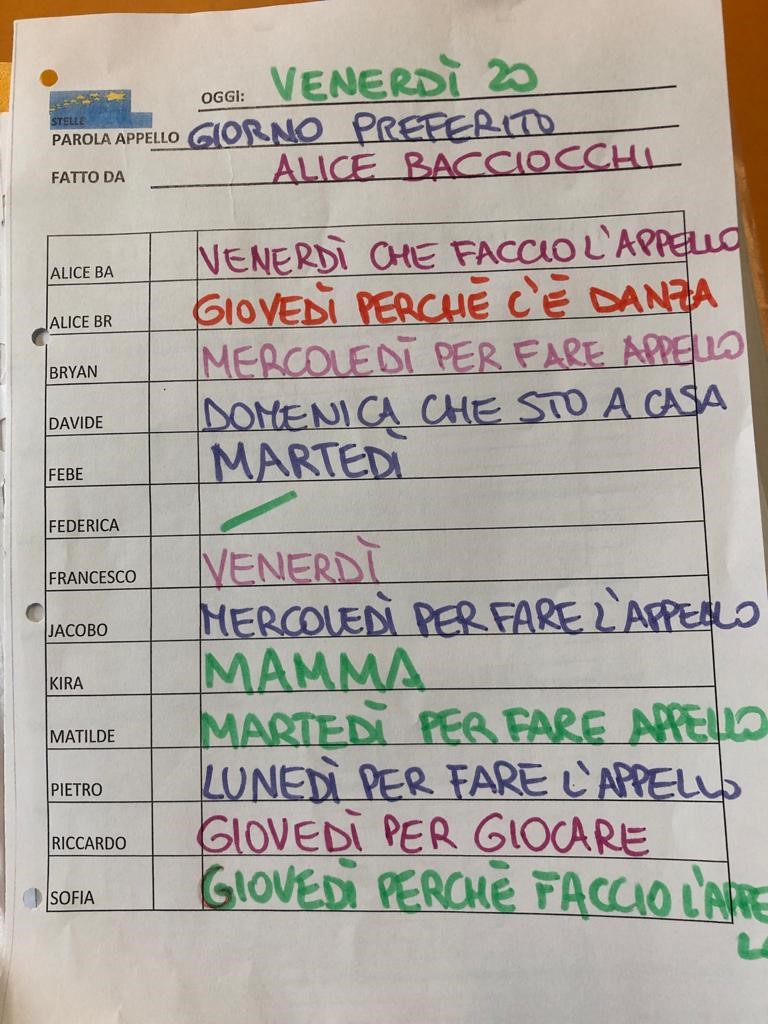 OGGI: VENERDÌ 20
STELLE
PAROLA APPELLO GIORNO PREFERITO
FATTO DA ALICE BACCIOCCHI
ALICE BA VENERDÌ CHE FACCIO L'APPELLO
ALICE BR GIOVEDÌ PERCHÈ C'È DANZA
BRYAN MERCOLEDÌ PER FARE APPELLO
DAVIDE DOMENICA CHE STO A CASA
FEBE MARTEDÌ
FEDERICA
FRANCESCO VENERDÌ
JACOBO MERCOLEDÌ PER FARE L'APPELLO
KIRA MAMMA
MATILDE MARTEDÌ PER FARE APPELLO
PIETRO LUNEDÌ PER FARE L'APPELLO
RICCARDO GIOVEDÌ PER GIOCARE
SOFIA GIOVEDÌ PERCHÈ FACCIO L'APPE
LO